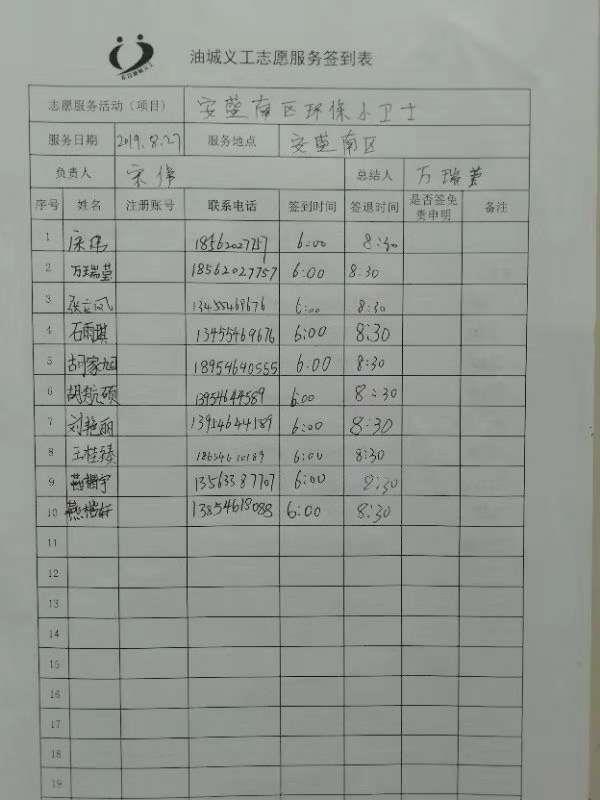 油城义工志愿服务签到表
志愿服务活动（项目） 安莹南区环保小卫士
服务日期 2019.8.27 服务地点 安莹南区
负责人 宋伟 总结人 万瑞莹
序号 姓名 注册账号 联系电话 签到时间 签退时间 是否签免责申明 备注
1 18562027757 6:00 8:30
2 万瑞莹 18562027757 6:00 8:30
3 张立凤 13455469676 6:00 8:30
4 石雨琪 13455469676 6:00 8:30
5 胡家旭 18954640555 6:00 8:30
6 胡航硕 13954644589 6:00 8:30
7 刘艳丽 6:00 8:30
8 王桂臻 6:00 8:30
9 13563387707 6:00 8:30
10 13854618088 6:00 8:30
11
12
13
14
15
16
17
18
19